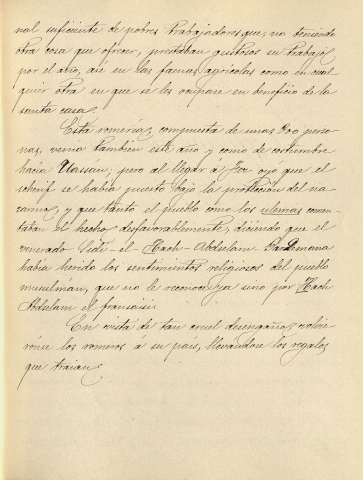 nal suficiente de pobres trabajadores que, no teniendo
otra cosa que ofrecer, prestaban gustosos su trabajo,
por el año, así en las faenas agrícolas como en cual
quier otra en que se les ocupase en beneficio de la
santa casa.
Esta romería, compuesta de unas 300 perso
nas, venia también este año y como de costumbre
hacia Uassan; pero al llegar á Fez oyó que el
scherif se había puesto bajo la protección del na
zareno, y que tanto el pueblo como los ulemas comen
taban el hecho desfavorablemente, diciendo que el
venerado Sidi-el Hach-Abdselam
había herido los sentimientos religiosos del pueblo
musulman, que no le reconocía ya sino por Hach
Abdselam el francisi.
En vista de tan cruel desengaño, volvie
ronse los romeros á su pais, llevandose los regalos
que traian.